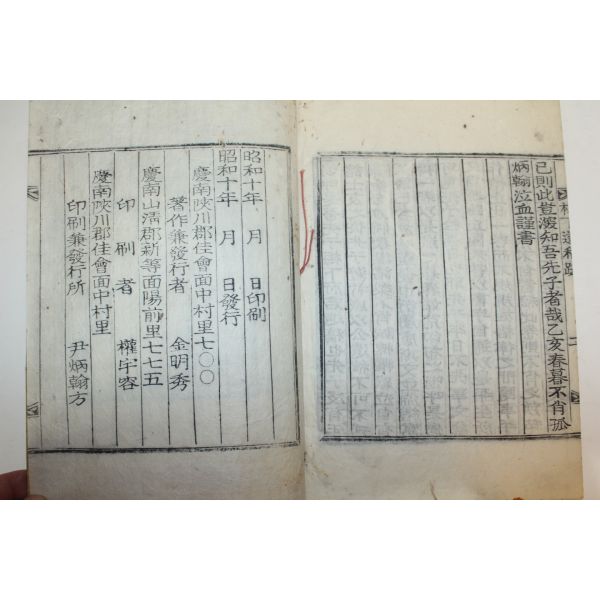 已則此豈溲知吾先子者哉乙亥春暮不肖孤
炳翰泣血謹書
遺稿跋
昭和十年 月 日印刷
昭和十年 月 日發行
慶南陜川郡佳會面中村里七〇〇
著作兼發行者 金明秀
慶南山淸郡新等面陽前里七七五
印刷者 權宇容
慶南陜川郡佳會面中村里
印刷兼發行所 尹炳翰方